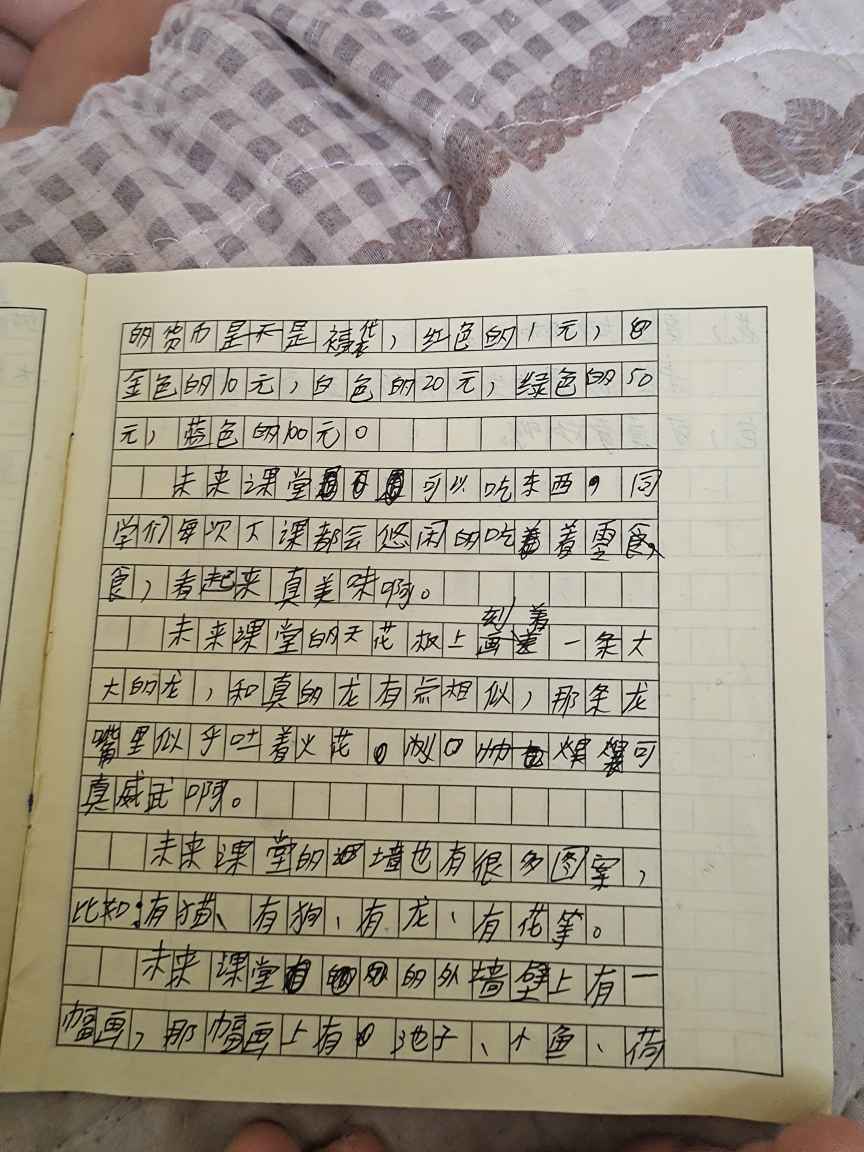 的货币是不是福袋，红色的1元，
金色的10元，白色的20元，绿色的50
元，蓝色的100元。
未来课堂可以吃东西，同
学们每次下课都会悠闲的吃着零食
食，看起来真美味啊。
刻着
未来课堂的天花板上画着一条大
大的龙，和真的龙有点相似，那条龙
嘴里似乎吐着火花。可
真威武啊。
未来课堂的墙也有很多图案，
比如：有猫、有狗、有龙、有花等。
未来课堂的外墙壁上有一
幅画，那幅画上有池子、小鱼、荷